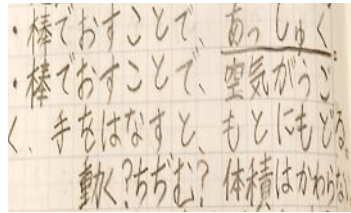 ・棒でおすことで、あっしゅく
・棒でおすことで、空気がうご
く、手をはなすと、もとにもどる。
動く？ちぢむ？体積はかわらな